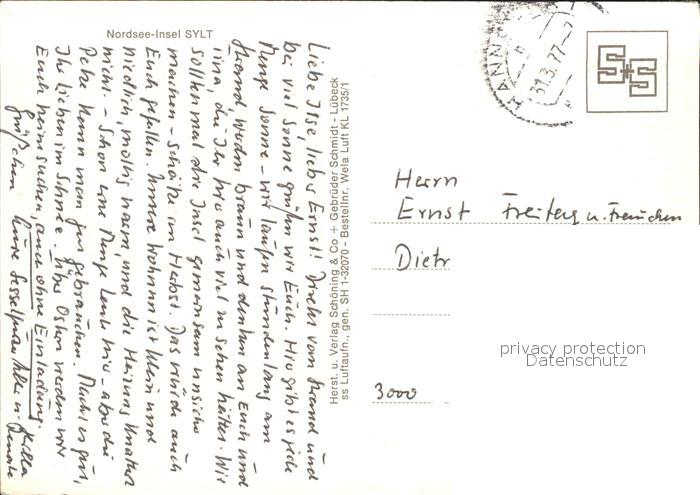 Nordsee-Insel SYLT
Liebe Ilse, lieber Ernst! Direkt vom Strand und
bei viel Sonne grüßen wir Euch. Hier gibt es jede
Menge Sonne - wir laufen stundenlang am
Strand, werden braun und denken an Euch und
die Ihr hier auch viel zu sehen hättet. Wir
sollten mal die Insel gemeinsam unsicher
machen - Schätze im Herbst. Das würde auch
Euch gefallen. Unsere Wohnung ist klein und
niedlich, mollig warm, und die Heizung knattert
nicht. - Schon eine Menge Leute hier - aber die
Pelze kann man gut gebrauchen. Macht es gut,
Ihr Lieben im Schnee. Über Ostern werden wir
Euch heimsuchen, auch ohne Einladung.
Grüßchen Eure
Renate
Herst. u. Verlag Schöning & Co + Gebrüder Schmidt - Lübeck
ss Luftaufn., gen. SH 1-32070 - Bestellnr. Wela Luft KL 1735/1
HANNOVER
31.3.77
S+S
Herrn
Ernst Freitag u. Frauchen
Dietr
3000
privacy protection
Datenschutz